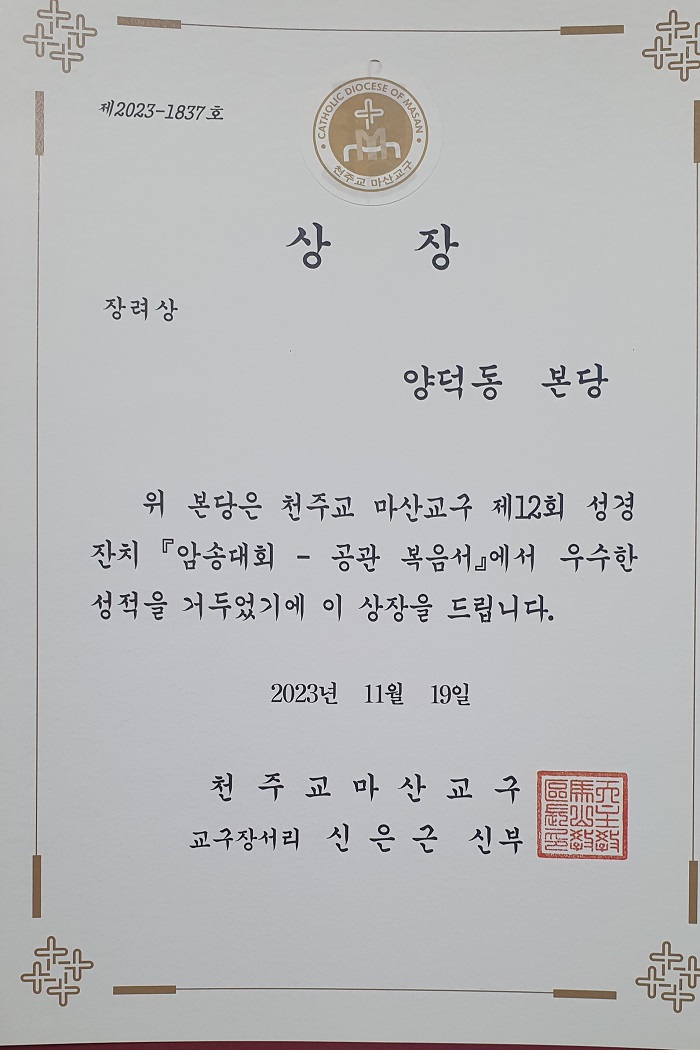 제2023-1837호
CATHOLIC DIOCESE OF MASAN
천주교 마산교구
상 장
장려상
양덕동 본당
위 본당은 천주교 마산교구 제12회 성경
잔치 『암송대회 - 공관 복음서』에서 우수한
성적을 거두었기에 이 상장을 드립니다.
2023년 11월 19일
천 주 교 마 산 교 구
교구장서리 신 은 근 신부